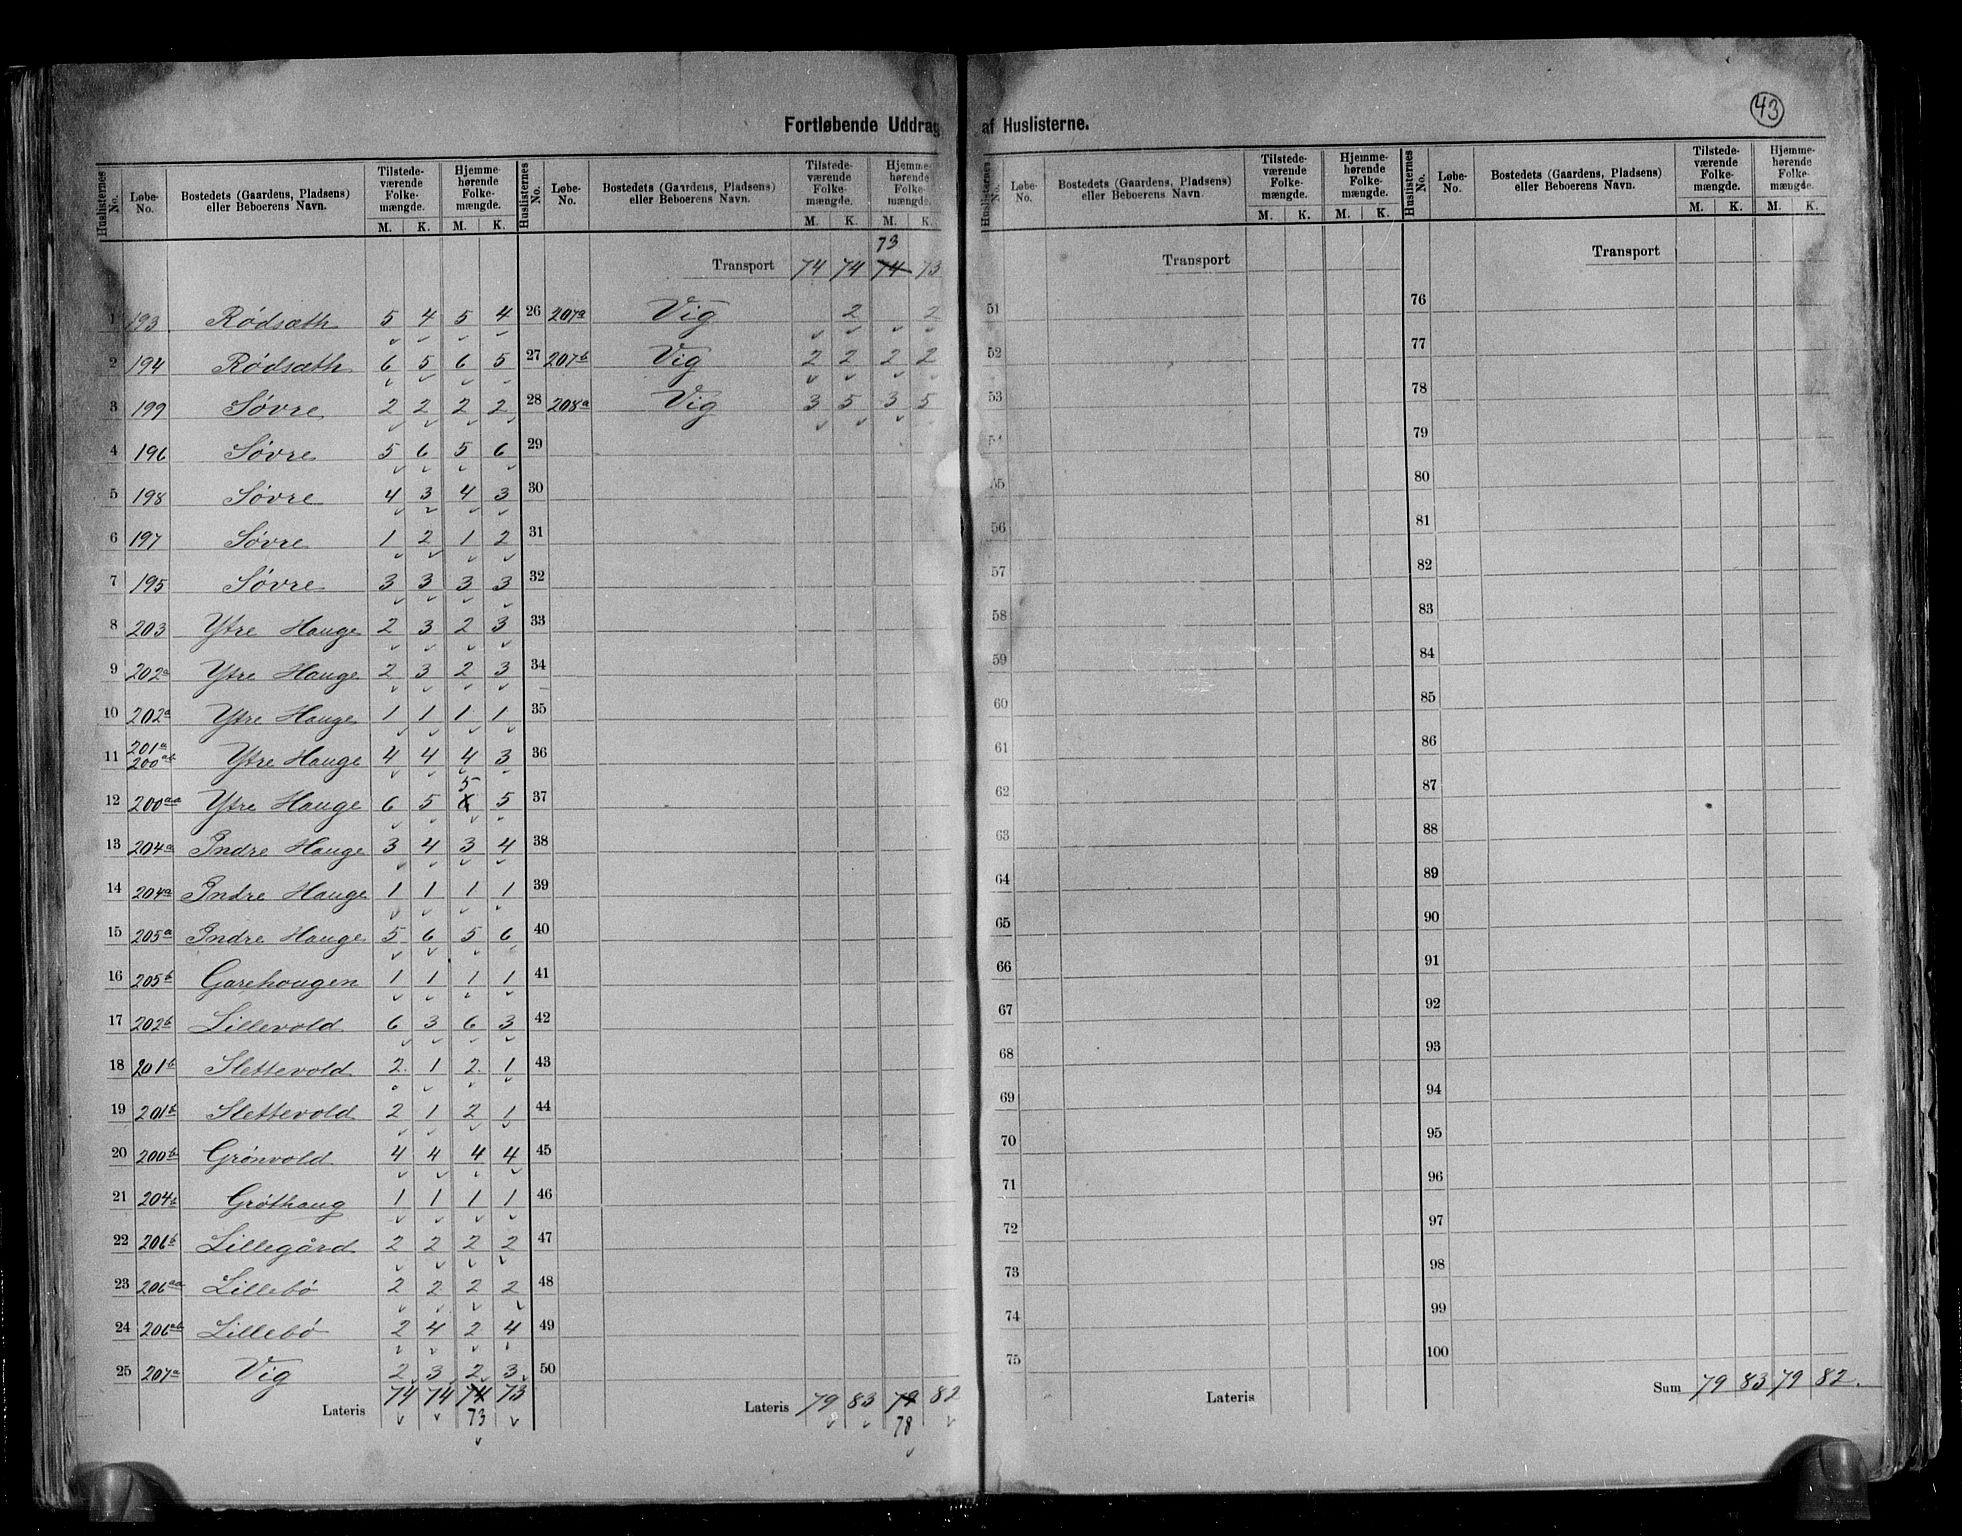 43
Fortløbende Uddrag af Huslisterne.
Huslisternes No. Løbe-No. Bostedets (Gaardens, Pladsens) eller Beboerens Navn. Tilstede-værende Folke-mængde. M. K. Hjemme-hørende Folke-mængde. M. K.
1 193 Rødsæth 5 4 5 4
2 194 Rødsæth 6 5 6 5
3 199 Søvre 2 2 2 2
4 196 Søvre 5 6 5 6
5 198 Søvre 4 3 4 3
6 197 Søvre 1 2 1 2
7 195 Søvre 3 3 3 3
8 203 Ytre Hauge 2 3 2 3
9 202a Ytre Hauge 2 3 2 3
10 202a Ytre Hauge 1 1 1 1
11 201a 200ab Ytre Hauge 4 4 4 3
12 200aa Ytre Hauge 6 5 5 5
13 204a Indre Hauge 3 4 3 4
14 204a Indre Hauge 1 1 1 1
15 205a Indre Hauge 5 6 5 6
16 205b Garehougen 1 1 1 1
17 202b Lillevold 6 3 6 3
18 201b Slettevold 2 1 2 1
19 201b Slettevold 2 1 2 1
20 200b Grønvold 4 4 4 4
21 204b Grøthaug 1 1 1 1
22 206b Lillegård 2 2 2 2
23 206aa Lillebø 2 2 2 2
24 206ab Lillebø 2 4 2 4
25 207a Vig 2 3 2 3
Lateris 74 74 74 73
73
Huslisternes No. Løbe-No. Bostedets (Gaardens, Pladsens) eller Beboerens Navn. Tilstede-værende Folke-mængde. M. K. Hjemme-hørende Folke-mængde. M. K.
73
Transport 74 74 74 73
26 207a Vig 2 2
27 207b Vig 2 2 2 2
28 208a Vig 3 5 3 5
29
30
31
32
33
34
35
36
37
38
39
40
41
42
43
44
45
46
47
48
49
50
Lateris 79 83 79 82
78
Huslisternes No. Løbe-No. Bostedets (Gaardens, Pladsens) eller Beboerens Navn. Tilstede-værende Folke-mængde. M. K. Hjemme-hørende Folke-mængde. M. K.
Transport
51
52
53
54
55
56
57
58
59
60
61
62
63
64
65
66
67
68
69
70
71
72
73
74
75
Lateris
Huslisternes No. Løbe-No. Bostedets (Gaardens, Pladsens) eller Beboerens Navn. Tilstede-værende Folke-mængde. M. K. Hjemme-hørende Folke-mængde. M. K.
Transport
76
77
78
79
80
81
82
83
84
85
86
87
88
89
90
91
92
93
94
95
96
97
98
99
100
Sum 79 83 79 82.